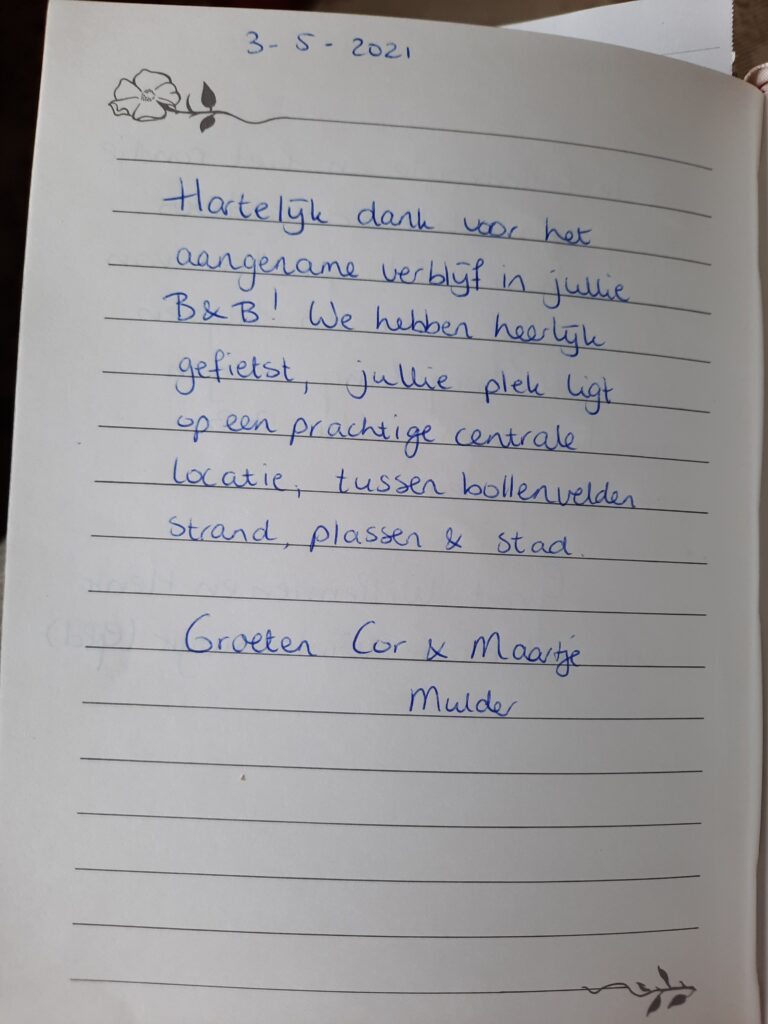 3-5-2021
Hartelijk dank voor het
aangename verblijf in jullie
B&B! We hebben heerlijk
gefietst, jullie plek ligt
op een prachtige centrale
locatie, tussen bollenvelden
strand, plassen & stad.
Groeten Cor & Maartje
Mulder